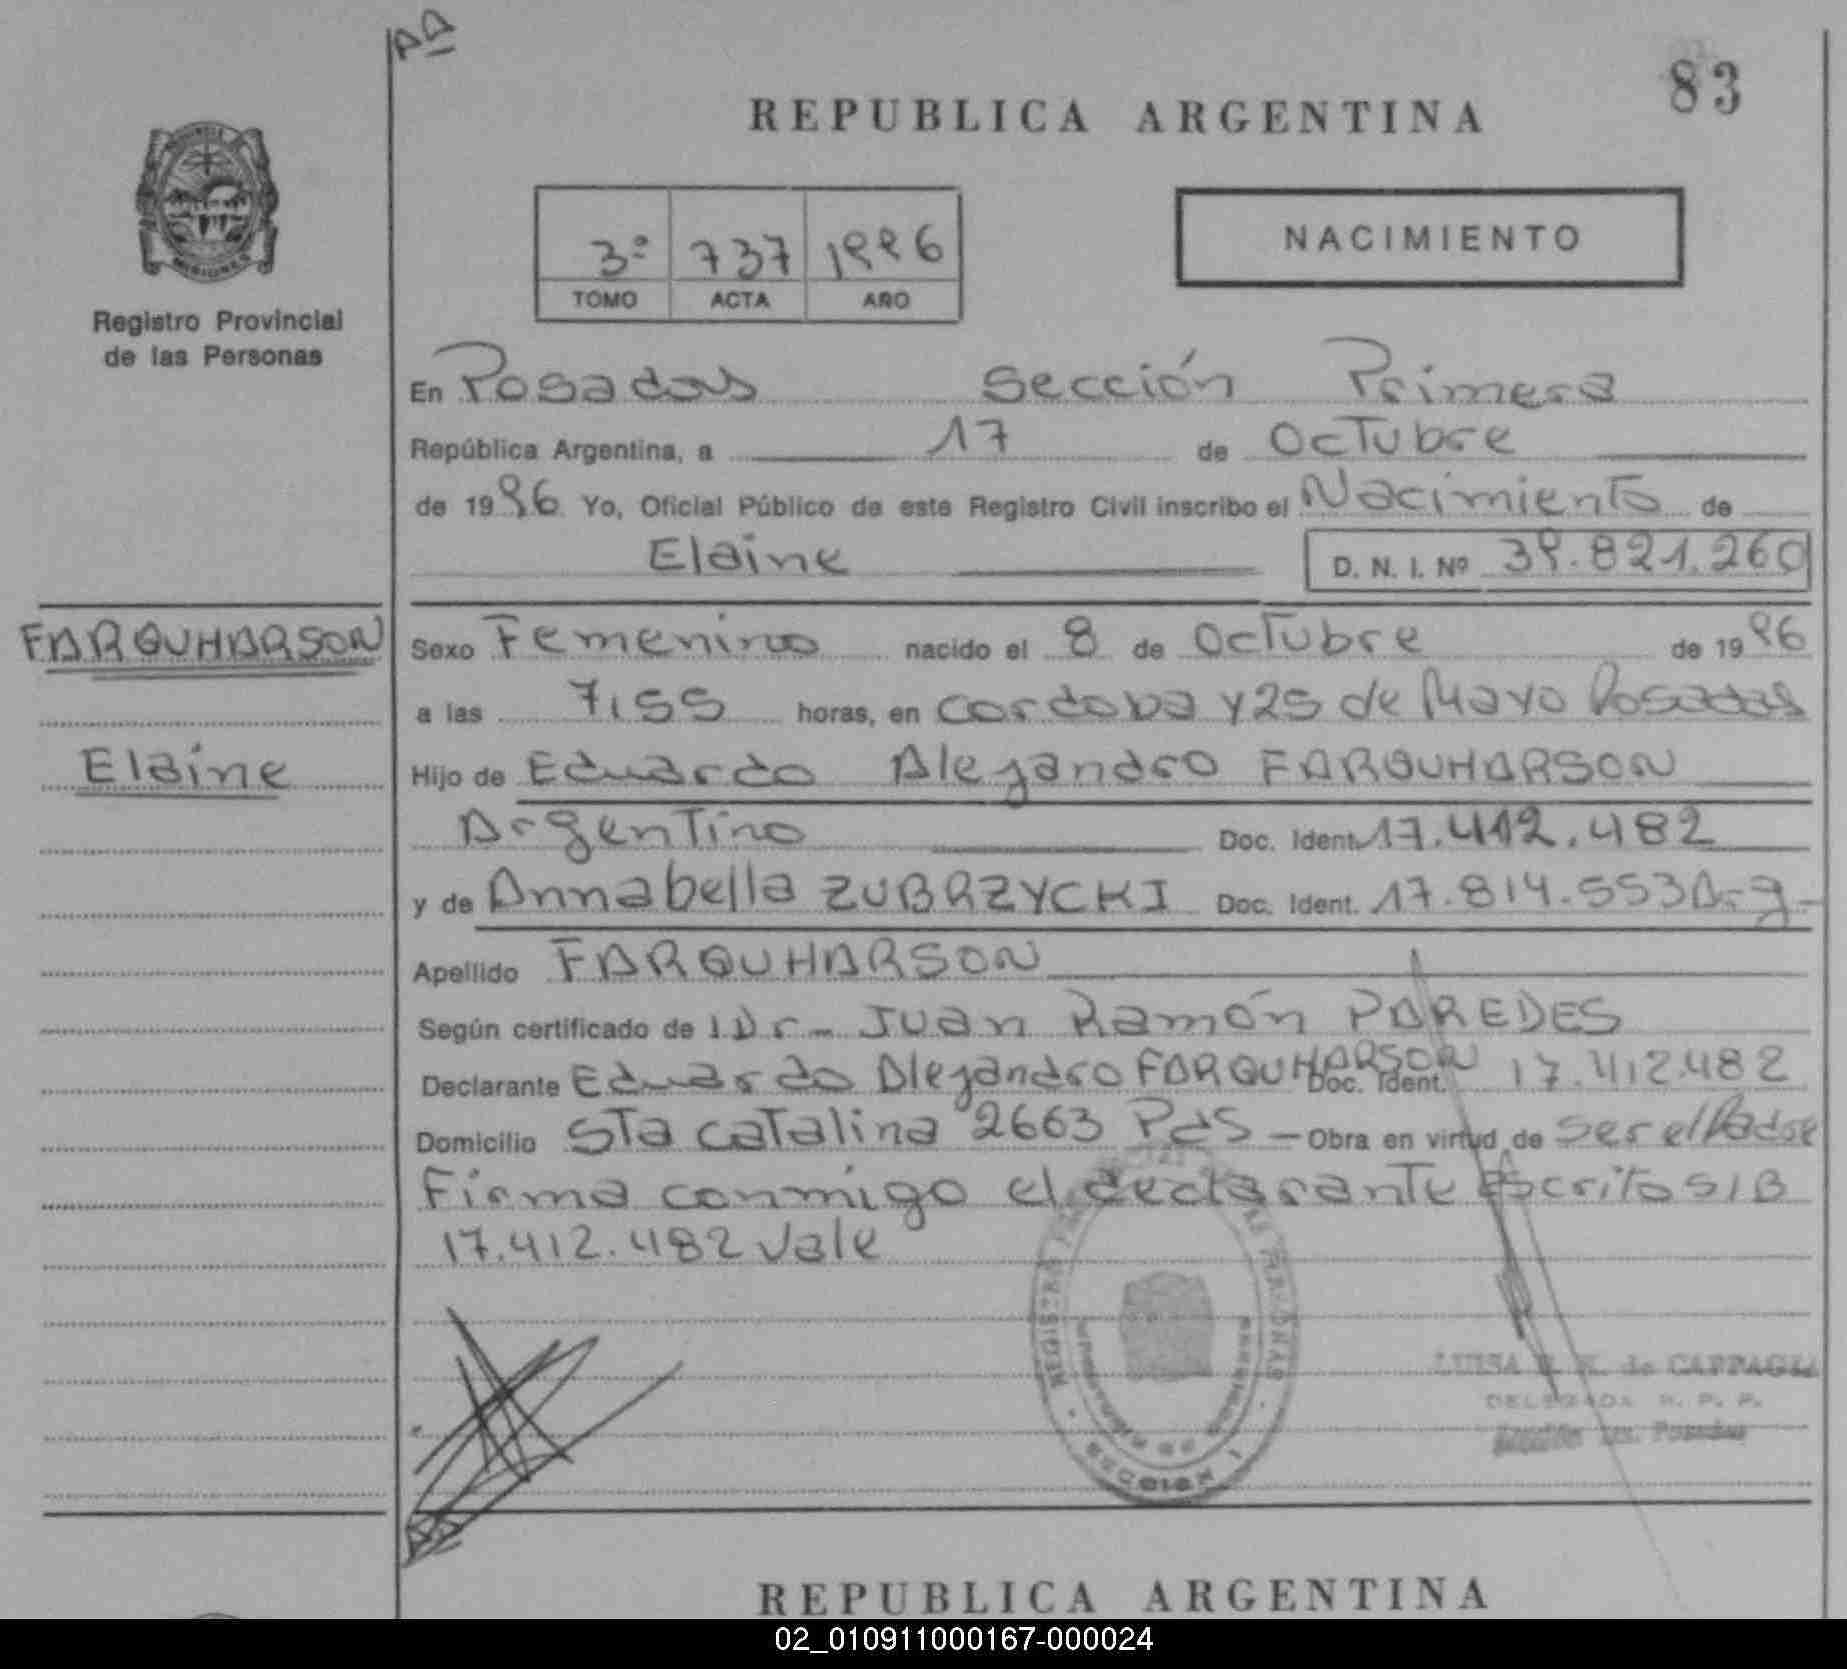 Aª
83
REPUBLICA ARGENTINA
MISIONES
Registro Provincial
de las Personas
3º 737 1996
TOMO ACTA AÑO
NACIMIENTO
En Posadas Sección Primera
República Argentina, a 17 de Octubre
de 1996 Yo, Oficial Público de este Registro Civil inscribo el Nacimiento de
Elaine D. N. I. Nº 39.821.260
FARQUHARSON
Elaine
Sexo Femenino nacido el 8 de Octubre de 1996
a las 7,55 horas, en Cordoba y 25 de Mayo Posadas
Hijo de Eduardo Alejandro FARQUHARSON
Argentino Doc. Ident. 17.412.482
y de Annabella ZUBRZYCKI Doc. Ident. 17.814.553 Arg-
Apellido FARQUHARSON
Según certificado de Dr. Juan Ramón PAREDES
Declarante Eduardo Alejandro FARQUHARSON Doc. Ident. 17.412.482
Domicilio Sta Catalina 2663 Pdas - Obra en virtud de ser el Padre
Firma conmigo el declarante Escrito S/B
17.412.482 Vale
SECCION 1
LUISA de CAPPAGLI
DELEGADA R. P. P.
Sección 1ra. Posadas
REPUBLICA ARGENTINA
02_010911000167-000024